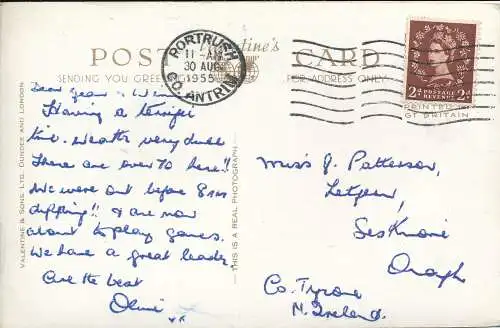 POST CARD
Valentine's
SENDING YOU GREETINGS
FOR ADDRESS ONLY
PORTRUSH
11-AM
30 AUG
1955
CO. ANTRIM
POSTAGE
REVENUE
2d 2d
PRINTED IN
GT BRITAIN
VALENTINE & SONS. LTD. DUNDEE AND LONDON.
THIS IS A REAL PHOTOGRAPH
Dear Jean &
Having a terrific
time. Weather very dull
There are over 70 here!!
We were out before 8am
& are now
about to play games.
We have a great leader
All the best
Olive
xx
Miss J. Patterson,
Letfern,
Seskinore
Omagh
Co. Tyrone
N. Ireland.